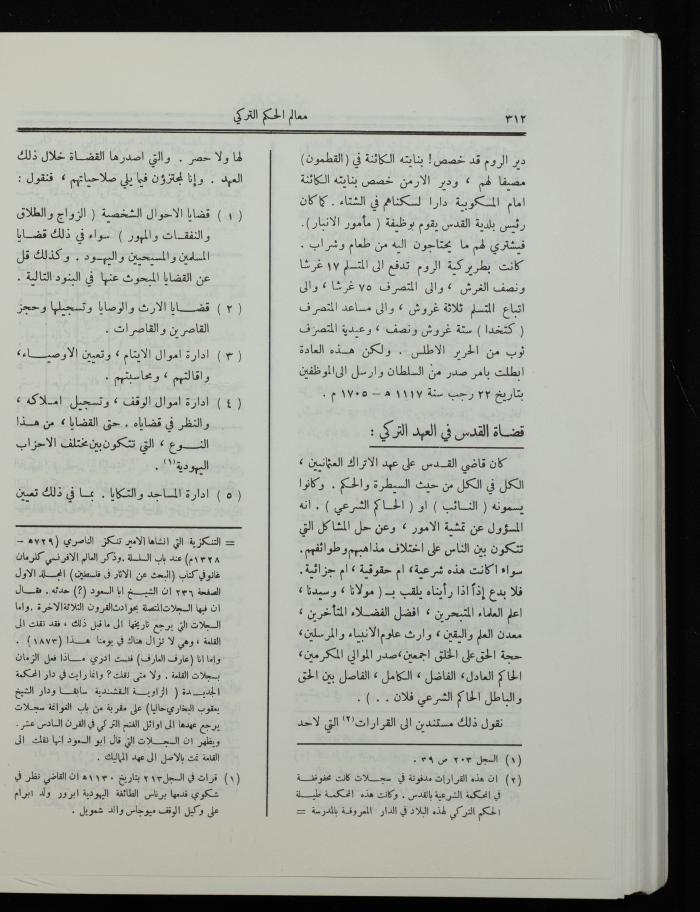 ٣١٢
معالم الحكم التركي
دير الروم قد خصص! بنايته الكائنة في (القطمون)
مصيفا لهم ، ودير الارمن خصص بنايته الكائنة
امام المسكوبية دارا لسكناهم في الشتاء . كما كان
رئيس بلدية القدس يقوم بوظيفة ( مأمور الانبار ) .
فيشتري لهم ما يحتاجون اليه من طعام وشراب .
كانت بطريركية الروم تدفع الى المتسلم ١٧ غرشا
ونصف الغرش ، والى المتصرف ٧٥ غرشا ، والى
اتباع المتسلم ثلاثة غروش ، والى مساعد المتصرف
( كتخدا ) ستة غروش ونصف ، وعيدية المتصرف
ثوب من الحرير الاطلس . ولكن هذه العادة
ابطلت بامر صدر من السلطان وارسل الى الموظفين
بتاريخ ٢٢ رجب سنة ١١١٧ ه – ١٧٠٥ م .
قضاة القدس في العهد التركي :
كان قاضي القدس على عهد الاتراك العثمانيين ،
الكل في الكل من حيث السيطرة والحكم . وكانوا
يسمونه ( النائب ) او ( الحاكم الشرعي ) . انه
المسؤول عن تمشية الامور ، وعن حل المشاكل التي
تتكون بين الناس على اختلاف مذاهبهم وطوائفهم .
سواء اكانت هذه شرعية، ام حقوقية ، ام جزائية .
فلا بدع إذاً اذا رأيناه يلقب بـ ( مولانا ، وسيدنا ،
اعلم العلماء المتبحرين ، افضل الفضلاء المتأخرين ،
معدن العلم واليقين ، وارث علوم الانبياء والمرسلين،
حجة الحق على الخلق اجمعين، صدر الموالي المكرمين،
الحاكم العادل، الفاضل ، الكامل ، الفاصل بين الحق
والباطل الحاكم الشرعي فلان . . ) .
نقول ذلك مستندين الى القرارات(٢) التي لاحد
(١) السجل ٢٠٣ ص ٣٩ .
(٢) ان هذه القرارات مدفونة في سجلات كانت محفوظة
في المحكمة الشرعية بالقدس . وكانت هذه المحكمة طيلة
الحكم التركي لهذه البلاد في الدار المعروفة بالمدرسة =
لها ولا حصر . والتي اصدرها القضاة خلال ذلك
العهد . وإنا لمجتزؤن فيما يلي صلاحياتهم ، فنقول :
( ١ ) قضايا الاحوال الشخصية ( الزواج والطلاق
والنفقات والمهور ) سواء في ذلك قضايا
المسلمين والمسيحيين واليهود . وكذلك قل
عن القضايا المبحوث عنها في البنود التالية .
( ٢ ) قضايا الارث والوصايا وتسجيلها وحجز
القاصرين والقاصرات .
( ٣ ) ادارة اموال الايتام ، وتعيين الاوصياء،
واقالتهم ، ومحاسبتهم .
( ٤ ) ادارة اموال الوقف ، وتسجيل املاكه ،
والنظر في قضاياه . حتى القضايا ، من هذا
النوع ، التي تتكون بين مختلف الاحزاب
اليهودية(١) .
( ٥ ) ادارة المساجد والتكايا . بما في ذلك تعيين
= التنكزية التي انشاها الامير تنكز الناصري (٧٢٩ه –
١٣٢٨م) عند باب السلسلة . وذكر العالم الافرنسي كلرمان
غانو في كتاب (البحث عن الاثار في فلسطين) المجلد الاول
الصفحة ٢٣٦ ان الشيخ ابا السعود (?) حدثه . فقال
ان فيها السجلات المتصلة بحوادث القرون الثلاثة الاخرة . واما
السجلات التي يرجع تاريخها الى ما قبل ذلك ، فقد نقلت الى
القلعة ، وهي لا تزال هناك في يومنا هذا (١٨٧٣) .
واما انا (عارف العارف) فلست ادري ماذا فعل الزمان
بسجلات القلعة . ولا متى نقلت? وانما رايت في دار المحكمة
الجديدة ( الزاوية النقشبندية سابقا ودار الشيخ
يعقوب البخاري حاليا) على مقربة من باب الغوانمة سجلات
يرجع عهدها الى اوائل الفتح التركي في القرن السادس عشر .
ويظهر ان السجلات التي قال ابو السعود انها نقلت الى
القلعة تمت بالاصل الى عهد المماليك .
(١) قرات في السجل ٢١٣ بتاريخ ١١٣٠ه ان القاضي نظر في
شكوى قدمها برناس الطائفة اليهودية ابرور ولد ابرام
على وكيل الوقف ميوجاس والد شمويل .